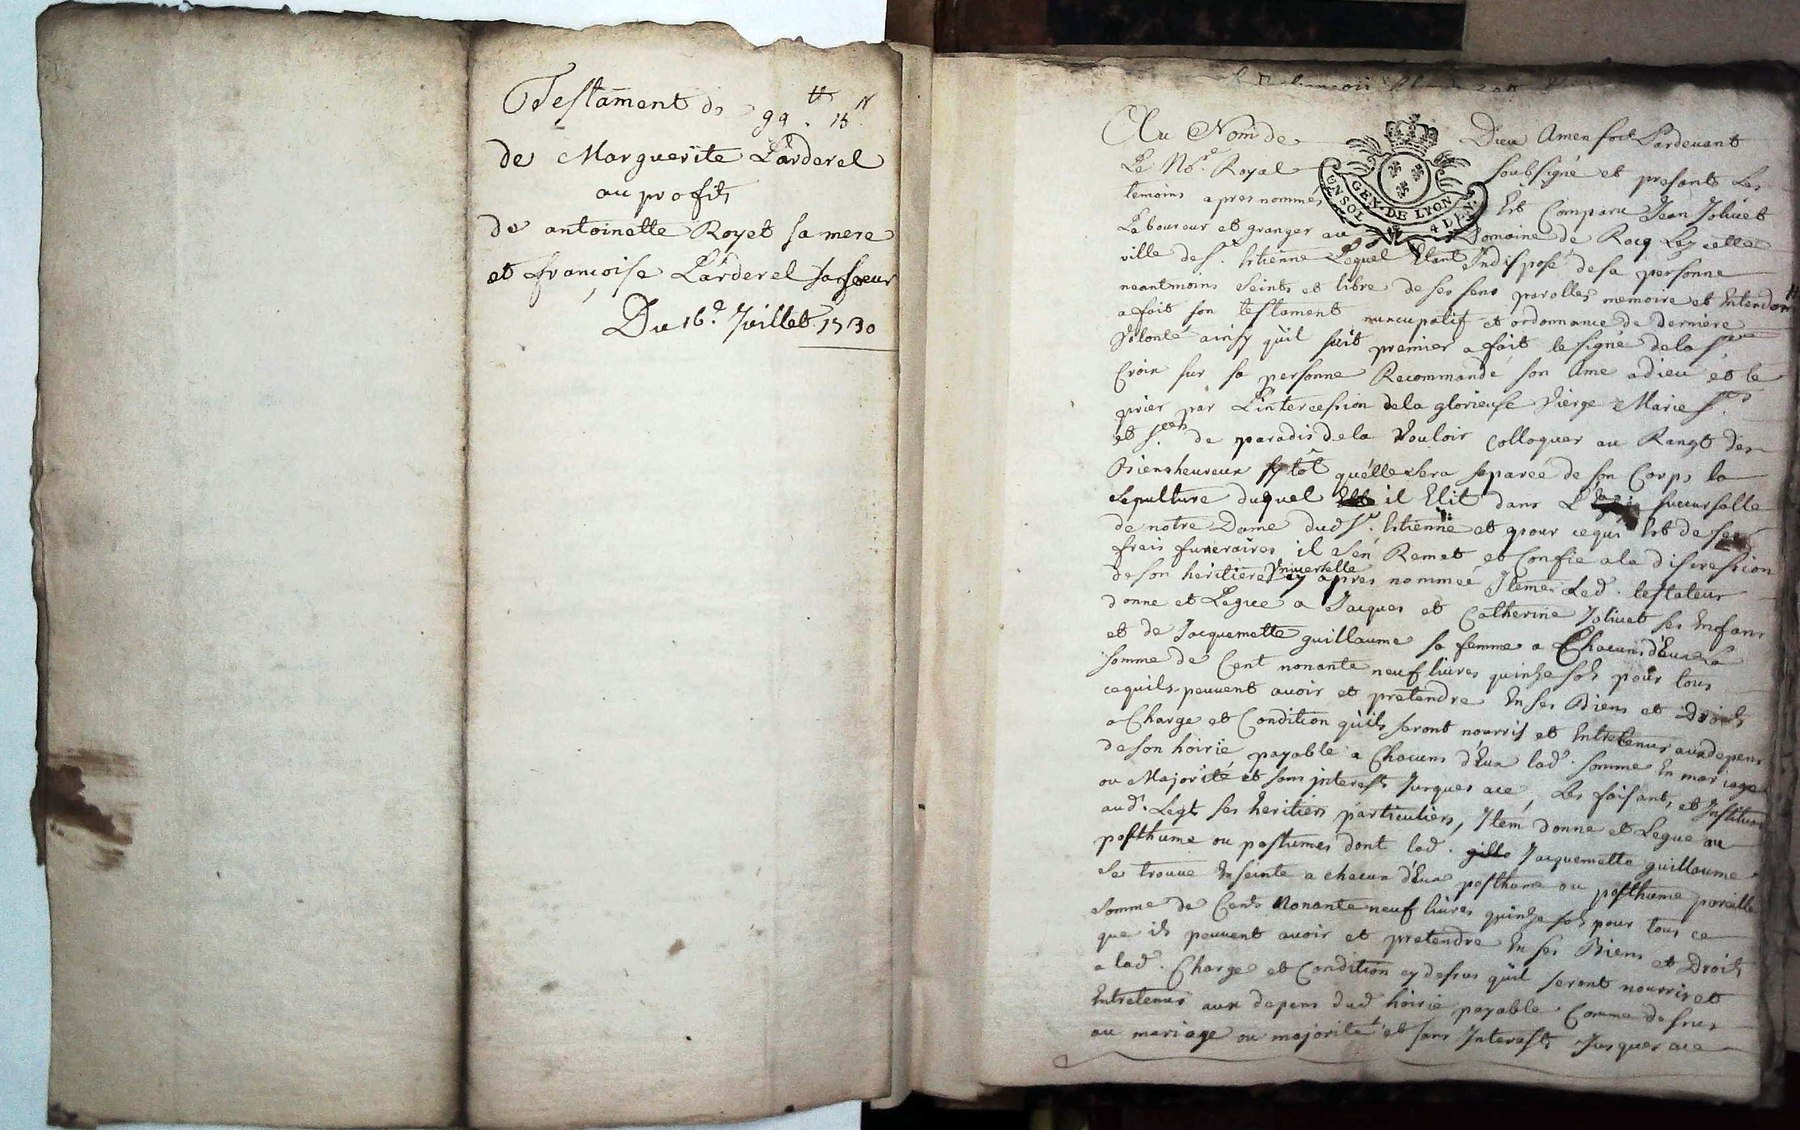 Testament de 99.tt 15.s
de Marguerite Larderel
au profit
de antoinette Royet sa mere
et françoise Larderel sa soeur
Du 16.e Juillet 1730
Au Nom de Dieu Amen soit Pardevant
Le No.re Royal soubsigné et presants Les
temoins apres nommés Est Comparu Jean Jolivet
Laboureur et granger au Domaine de
ville de St. Etienne Lequel Etant Indisposé de sa personne
neantmoins seints et libre de ses sens parolles memoire et Entendem.t
a fait son testament nuncupatif et ordonnance de derniere
Volonté ainsy qu'il suit premier a fait le signe de la s.te
Croix sur sa personne Recommande son ame a dieu et le
prier par L'intercession de la glorieuse Vierge Marie
et s.ts de paradis de la Vouloir Colloquer au Rangt des
Bienheureux sytôt qu'elle sera separée de son Corps la
sepulture duquel il Elit dans succursalle
de notre Dame dud St. Etienne et pour ce qui Est de ses
frais funeraires il s'en Remet et Confie a la discression
de son heritiere Universelle cy apres nommée Item Led. testateur
donne et Legue a Jacques et Catherine Jolivet ses Enfans
et de Jacquemette guillaume sa femme a Chacuns d'Eux La
somme de Cent nonante neuf livres quinze sols pour tous
ce quils peuvent avoir et pretendre En ses Biens et Droits
a Charge et Condition qu'ils seront nourris et Entretenus aux depens
de son hoirie, payable a Chacuns d'Eux lad. somme En mariage
ou Majorité et sans interest Jusques a ce, Les faisant, et Instituant
aud. Legt ses heritiers particuliers, Item donne et Legue au
posthume ou postumes dont lad. Jacquemette guillaume
se trouve Enseinte a chacun d'Eux posthume ou posthume pareille
somme de Cent Nonante neuf livres quinze sols pour tous ce
que ils peuvent avoir et pretendre En ses Biens et Droits
a lad. Charge et Condition cy dessus qu'il seront nourris et
Entretenus aux depens dud hoirie payable Comme dessus
au mariage ou majorité et sans Interest Jusques a ce
GEN. DE LYON
UN SOL
4 DEN.